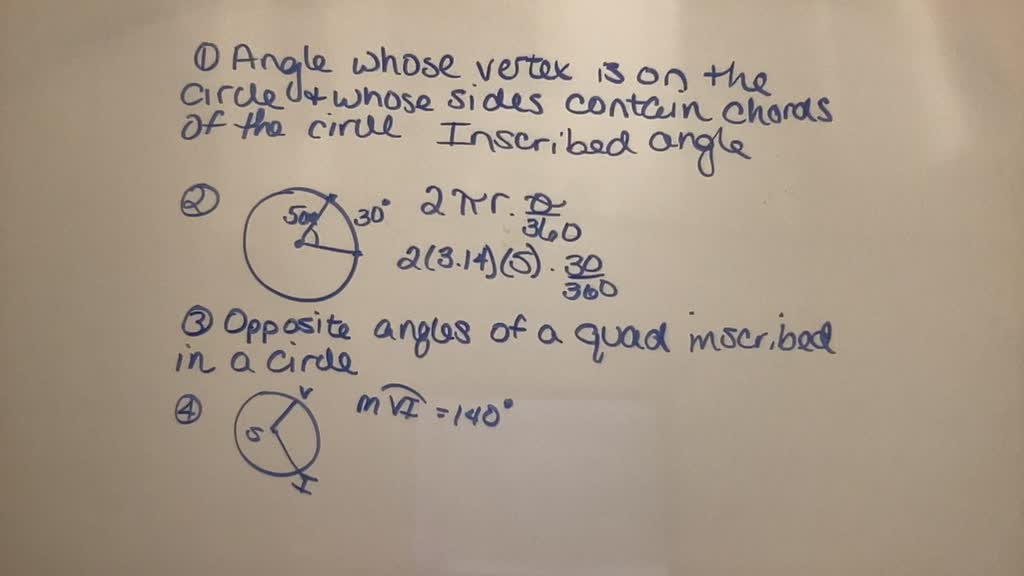 ① Angle whose vertex is on the
circle & whose sides contain chords
of the circle Inscribed angle
② 30° 2πr. θ/360
2(3.14)(5) . 30/360
③ Opposite angles of a quad inscribed
in a circle
④ V m VI = 140°
S
I